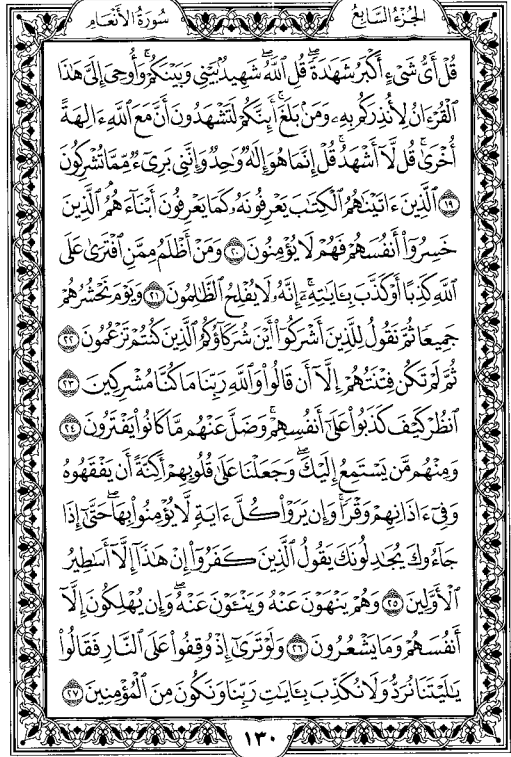 الجُزْءُ السَّابِعُ
سُورَةُ الأَنْعَامِ
قُلْ أَيُّ شَىْءٍ أَكْبَرُ شَهَٰدَةً ۖ قُلِ ٱللَّهُ ۖ شَهِيدٌۢ بَيْنِى وَبَيْنَكُمْ ۚ وَأُوحِىَ إِلَىَّ هَٰذَا
ٱلْقُرْءَانُ لِأُنذِرَكُم بِهِۦ وَمَنۢ بَلَغَ ۚ أَئِنَّكُمْ لَتَشْهَدُونَ أَنَّ مَعَ ٱللَّهِ ءَالِهَةً
أُخْرَىٰ ۚ قُل لَّآ أَشْهَدُ ۚ قُلْ إِنَّمَا هُوَ إِلَٰهٌ وَٰحِدٌ وَإِنَّنِى بَرِىٓءٌ مِّمَّا تُشْرِكُونَ
١٩ ٱلَّذِينَ ءَاتَيْنَٰهُمُ ٱلْكِتَٰبَ يَعْرِفُونَهُۥ كَمَا يَعْرِفُونَ أَبْنَآءَهُمُ ٱلَّذِينَ
خَسِرُوٓا۟ أَنفُسَهُمْ فَهُمْ لَا يُؤْمِنُونَ ٢٠ وَمَنْ أَظْلَمُ مِمَّنِ ٱفْتَرَىٰ عَلَى
ٱللَّهِ كَذِبًا أَوْ كَذَّبَ بِـَٔايَٰتِهِۦٓ ۗ إِنَّهُۥ لَا يُفْلِحُ ٱلظَّٰلِمُونَ ٢١ وَيَوْمَ نَحْشُرُهُمْ
جَمِيعًا ثُمَّ نَقُولُ لِلَّذِينَ أَشْرَكُوٓا۟ أَيْنَ شُرَكَآؤُكُمُ ٱلَّذِينَ كُنتُمْ تَزْعُمُونَ ٢٢
ثُمَّ لَمْ تَكُن فِتْنَتُهُمْ إِلَّآ أَن قَالُوا۟ وَٱللَّهِ رَبِّنَا مَا كُنَّا مُشْرِكِينَ ٢٣
ٱنظُرْ كَيْفَ كَذَبُوا۟ عَلَىٰٓ أَنفُسِهِمْ ۚ وَضَلَّ عَنْهُم مَّا كَانُوا۟ يَفْتَرُونَ ٢٤
وَمِنْهُم مَّن يَسْتَمِعُ إِلَيْكَ ۖ وَجَعَلْنَا عَلَىٰ قُلُوبِهِمْ أَكِنَّةً أَن يَفْقَهُوهُ
وَفِىٓ ءَاذَانِهِمْ وَقْرًا ۚ وَإِن يَرَوْا۟ كُلَّ ءَايَةٍ لَّا يُؤْمِنُوا۟ بِهَا ۚ حَتَّىٰٓ إِذَا
جَآءُوكَ يُجَٰدِلُونَكَ يَقُولُ ٱلَّذِينَ كَفَرُوٓا۟ إِنْ هَٰذَآ إِلَّآ أَسَٰطِيرُ
ٱلْأَوَّلِينَ ٢٥ وَهُمْ يَنْهَوْنَ عَنْهُ وَيَنْـَٔوْنَ عَنْهُ ۖ وَإِن يُهْلِكُونَ إِلَّآ
أَنفُسَهُمْ وَمَا يَشْعُرُونَ ٢٦ وَلَوْ تَرَىٰٓ إِذْ وُقِفُوا۟ عَلَى ٱلنَّارِ فَقَالُوا۟
يَٰلَيْتَنَا نُرَدُّ وَلَا نُكَذِّبَ بِـَٔايَٰتِ رَبِّنَا وَنَكُونَ مِنَ ٱلْمُؤْمِنِينَ ٢٧
١٣٠